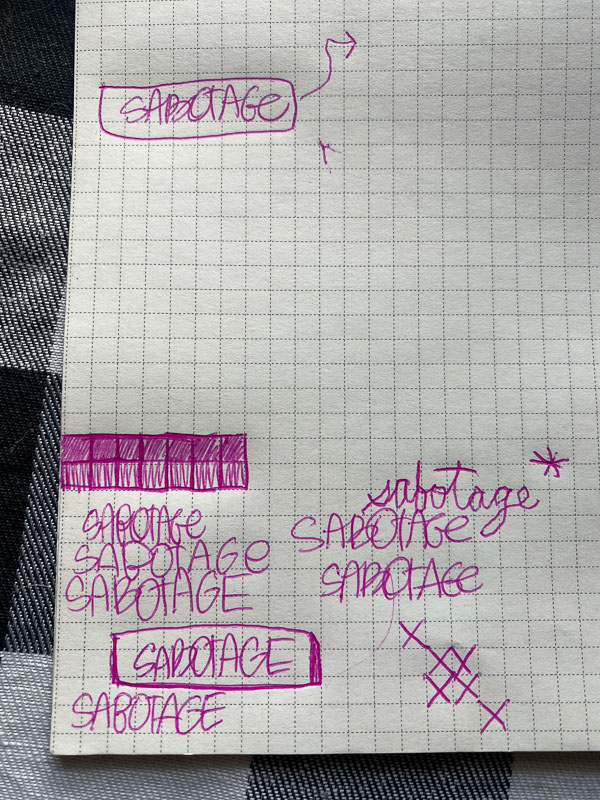 SABOTAGE
SABOTAGE
SABOTAGE
SABOTAGE
SABOTAGE
SABOTAGE
sabotage *
SABOTAGE
SABOTAGE